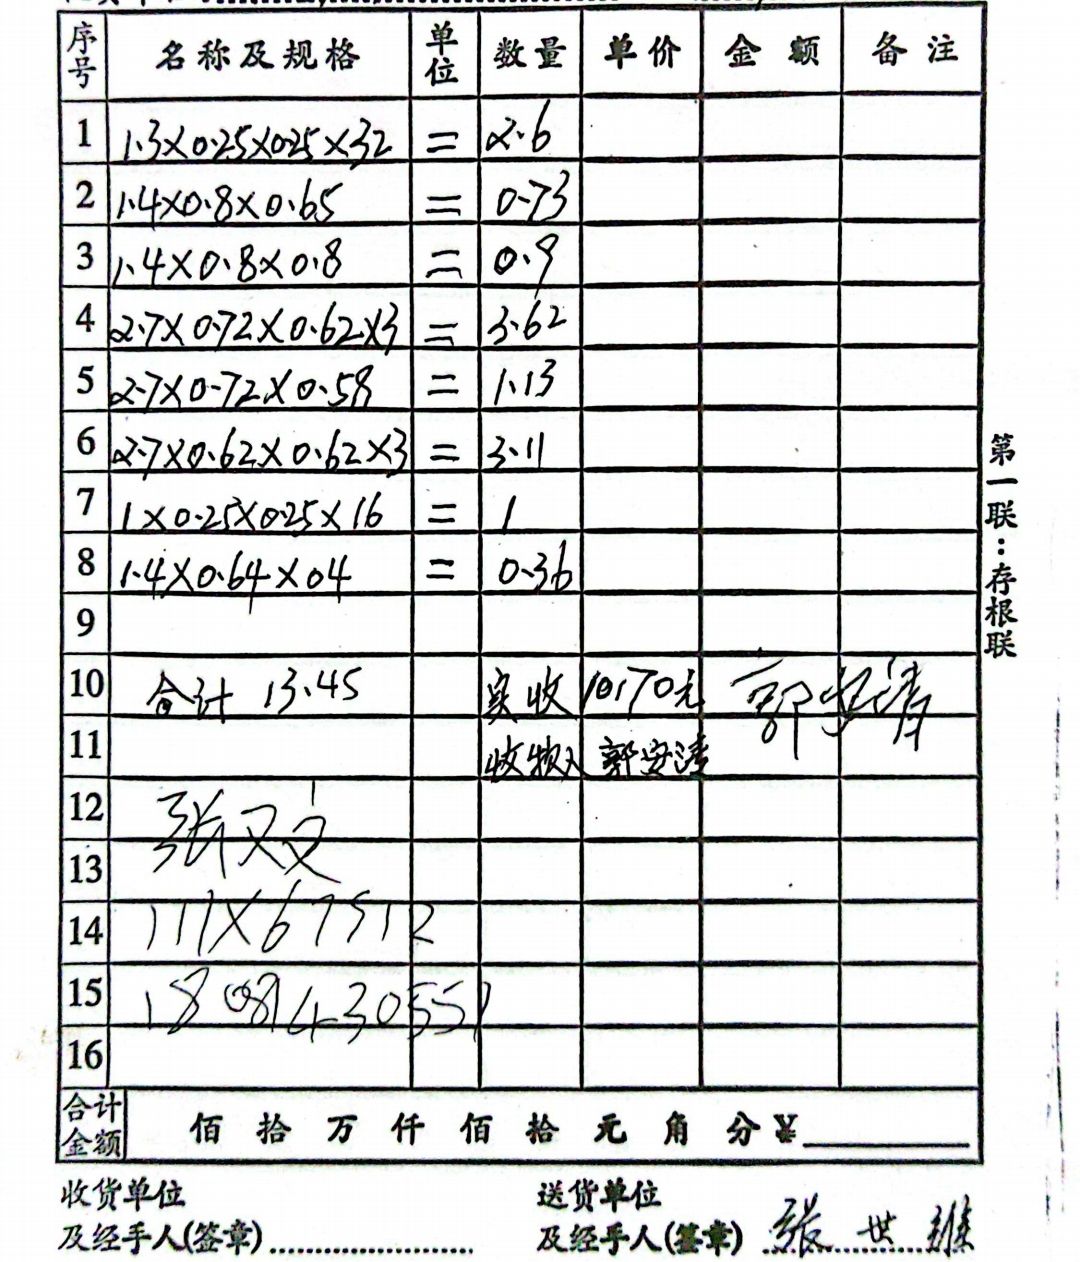 序号 名称及规格 单位 数量 单价 金额 备注
1 1.3×0.25×0.25×32 = 2.6
2 1.4×0.8×0.65 = 0.73
3 1.4×0.8×0.8 = 0.9
4 2.7×0.72×0.62×3 = 3.62
5 2.7×0.72×0.58 = 1.13
6 2.7×0.62×0.62×3 = 3.11
7 1×0.25×0.25×16 = 1
8 1.4×0.64×04 = 0.36
9
10 合计 13.45 实收 10170元 郭安清
11 收物人 郭安清
12 张又文
13
14 111X67512
15
16
合计金额 佰 拾 万 仟 佰 拾 元 角 分 ¥
第一联：存根联
收货单位 送货单位
及经手人(签章) 及经手人(签章) 张世雄